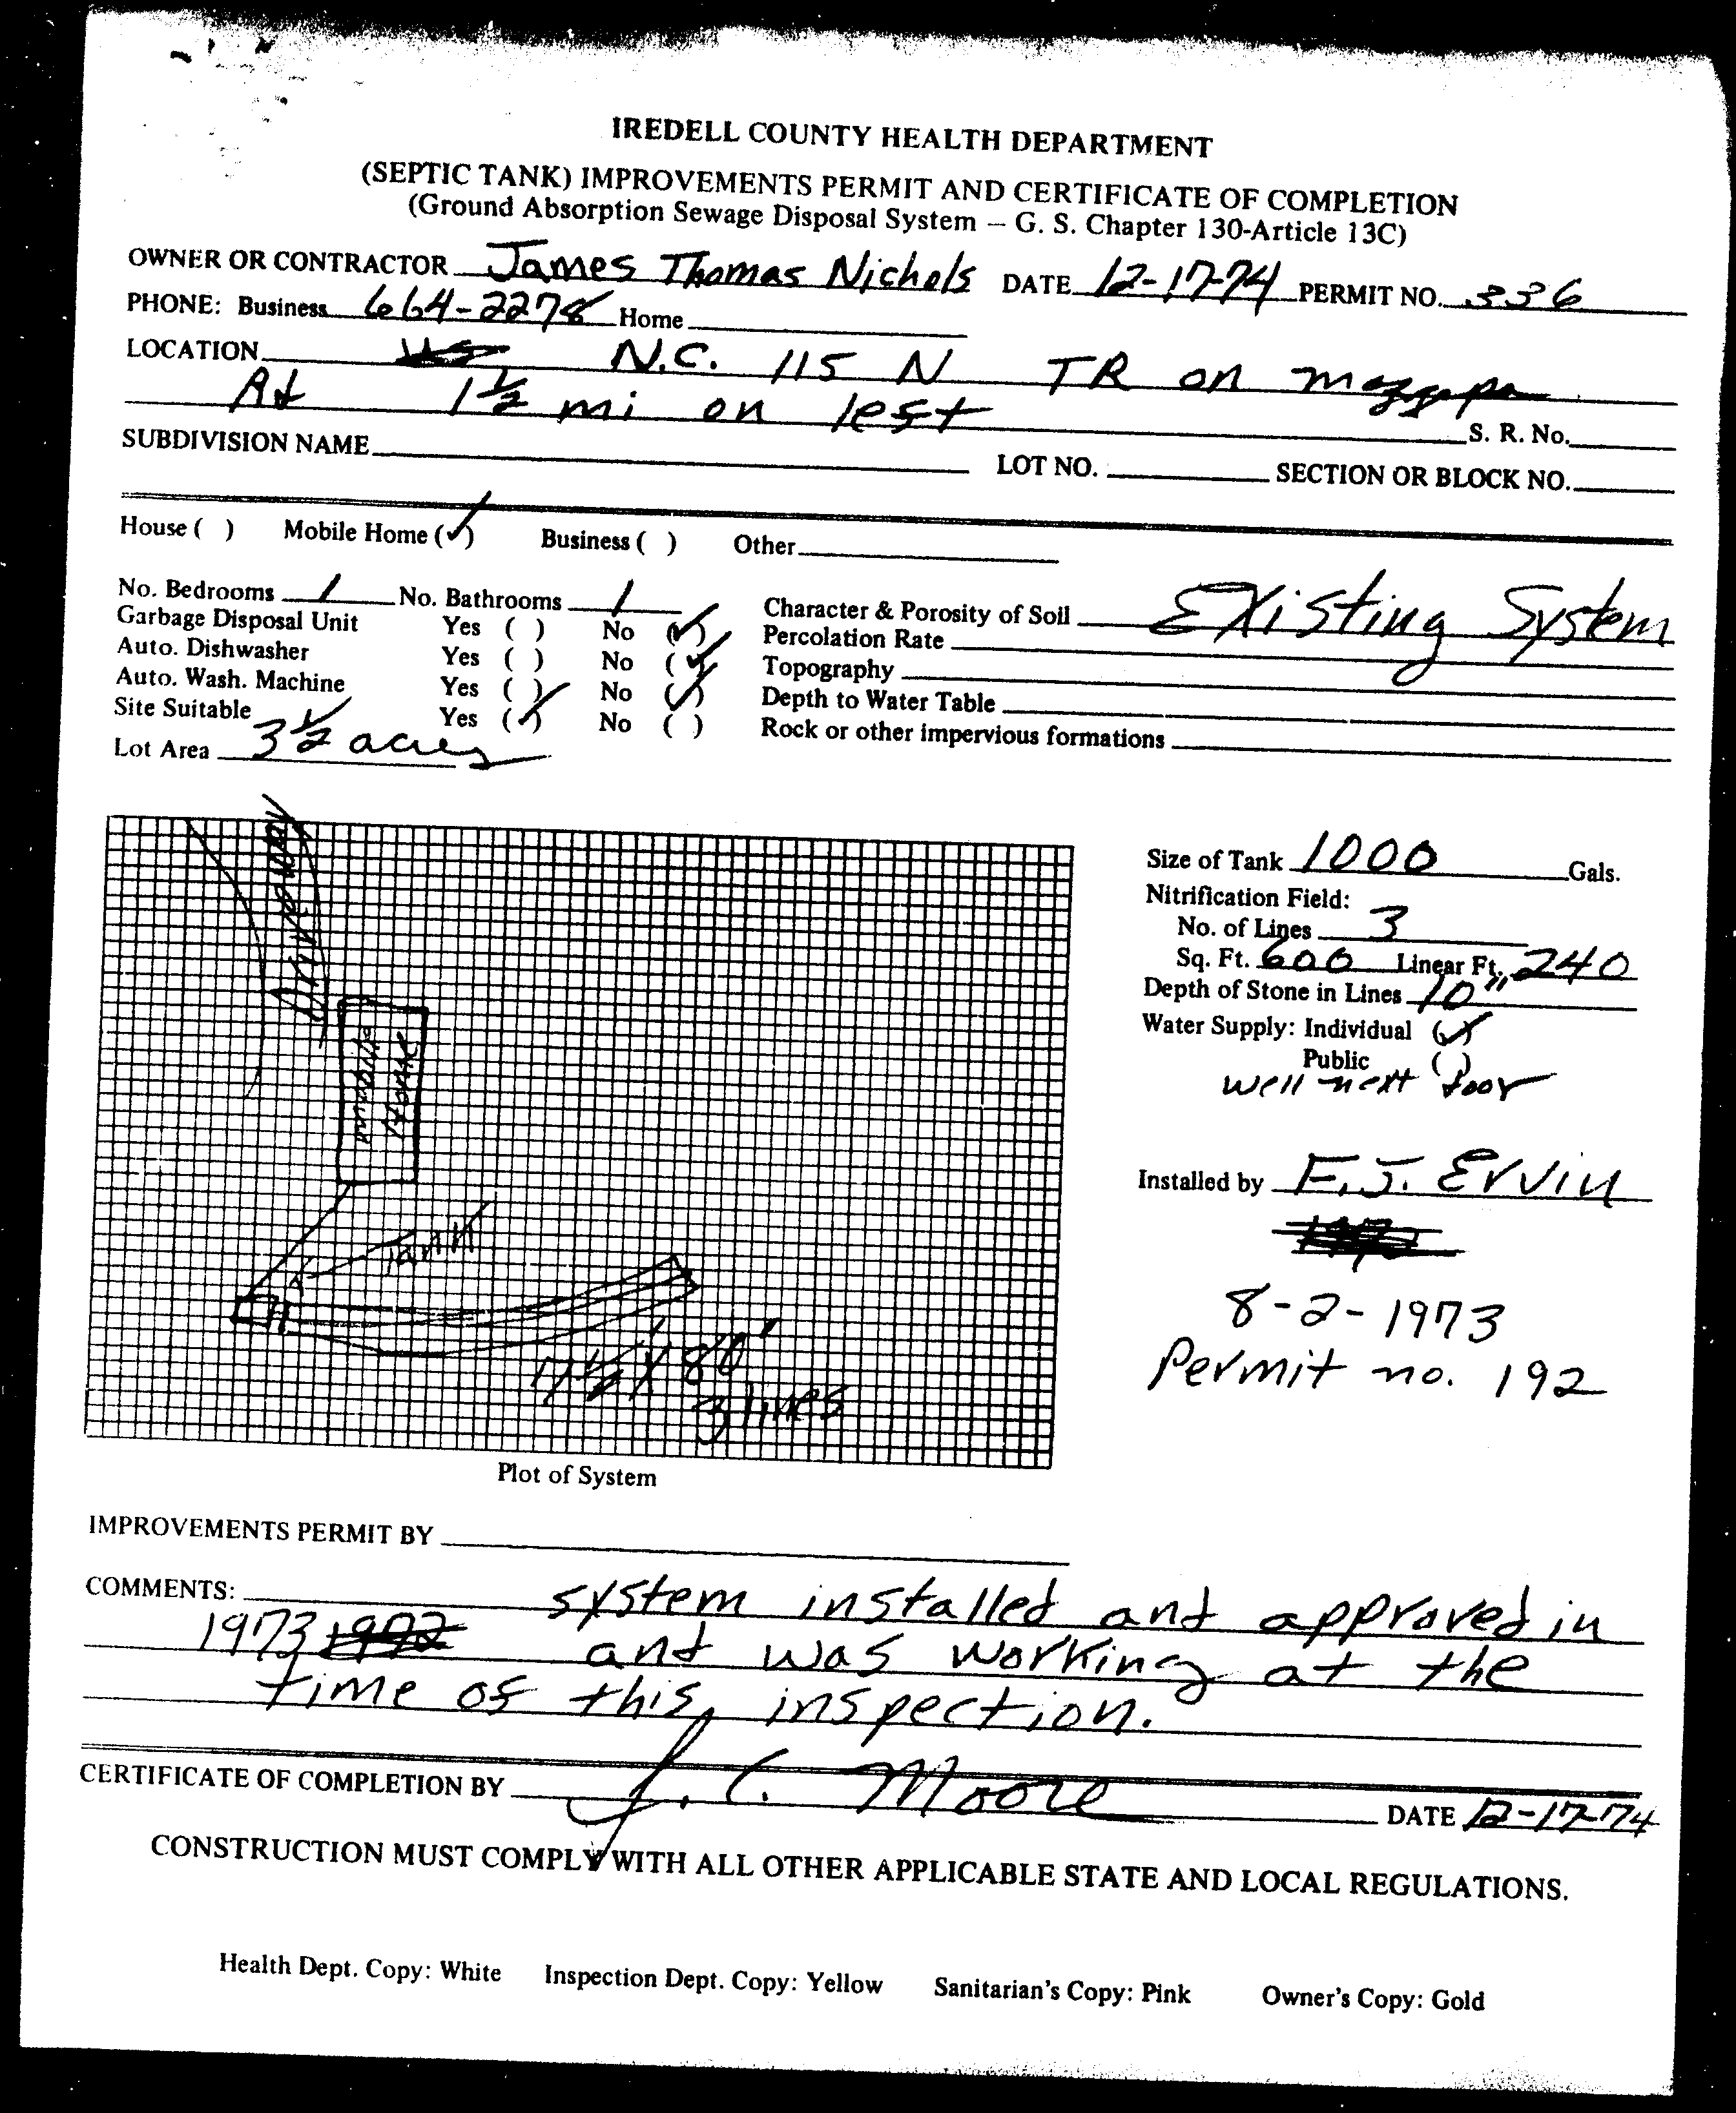 IREDELL COUNTY HEALTH DEPARTMENT
(SEPTIC TANK) IMPROVEMENTS PERMIT AND CERTIFICATE OF COMPLETION
(Ground Absorption Sewage Disposal System – G. S. Chapter 130-Article 13C)
OWNER OR CONTRACTOR James Thomas Nichols DATE 12-17-74 PERMIT NO. 336
PHONE: Business 664-2278 Home
LOCATION N.C. 115 N TR on
At 1½ mi on left S. R. No.
SUBDIVISION NAME LOT NO. SECTION OR BLOCK NO.
House ( ) Mobile Home (✓) Business ( ) Other
No. Bedrooms 1 No. Bathrooms 1 Character & Porosity of Soil Existing System
Garbage Disposal Unit Yes ( ) No (✓) Percolation Rate
Auto. Dishwasher Yes ( ) No (✓) Topography
Auto. Wash. Machine Yes ( ) No (✓) Depth to Water Table
Site Suitable Yes (✓) No ( ) Rock or other impervious formations
Lot Area 3½ acres
Size of Tank 1000 Gals.
Nitrification Field:
No. of Lines 3
Sq. Ft. 600 Linear Ft. 240
Depth of Stone in Lines 10"
Water Supply: Individual (✓)
Public ( )
well next door
House
Tank
80"
3 lines
Installed by F.J. Ervin
8-2-1973
Permit no. 192
Plot of System
IMPROVEMENTS PERMIT BY
COMMENTS: system installed and approved in
1973 and was working at the
time of this inspection.
CERTIFICATE OF COMPLETION BY J. C. Moore DATE 12-17-74
CONSTRUCTION MUST COMPLY WITH ALL OTHER APPLICABLE STATE AND LOCAL REGULATIONS.
Health Dept. Copy: White Inspection Dept. Copy: Yellow Sanitarian's Copy: Pink Owner's Copy: Gold